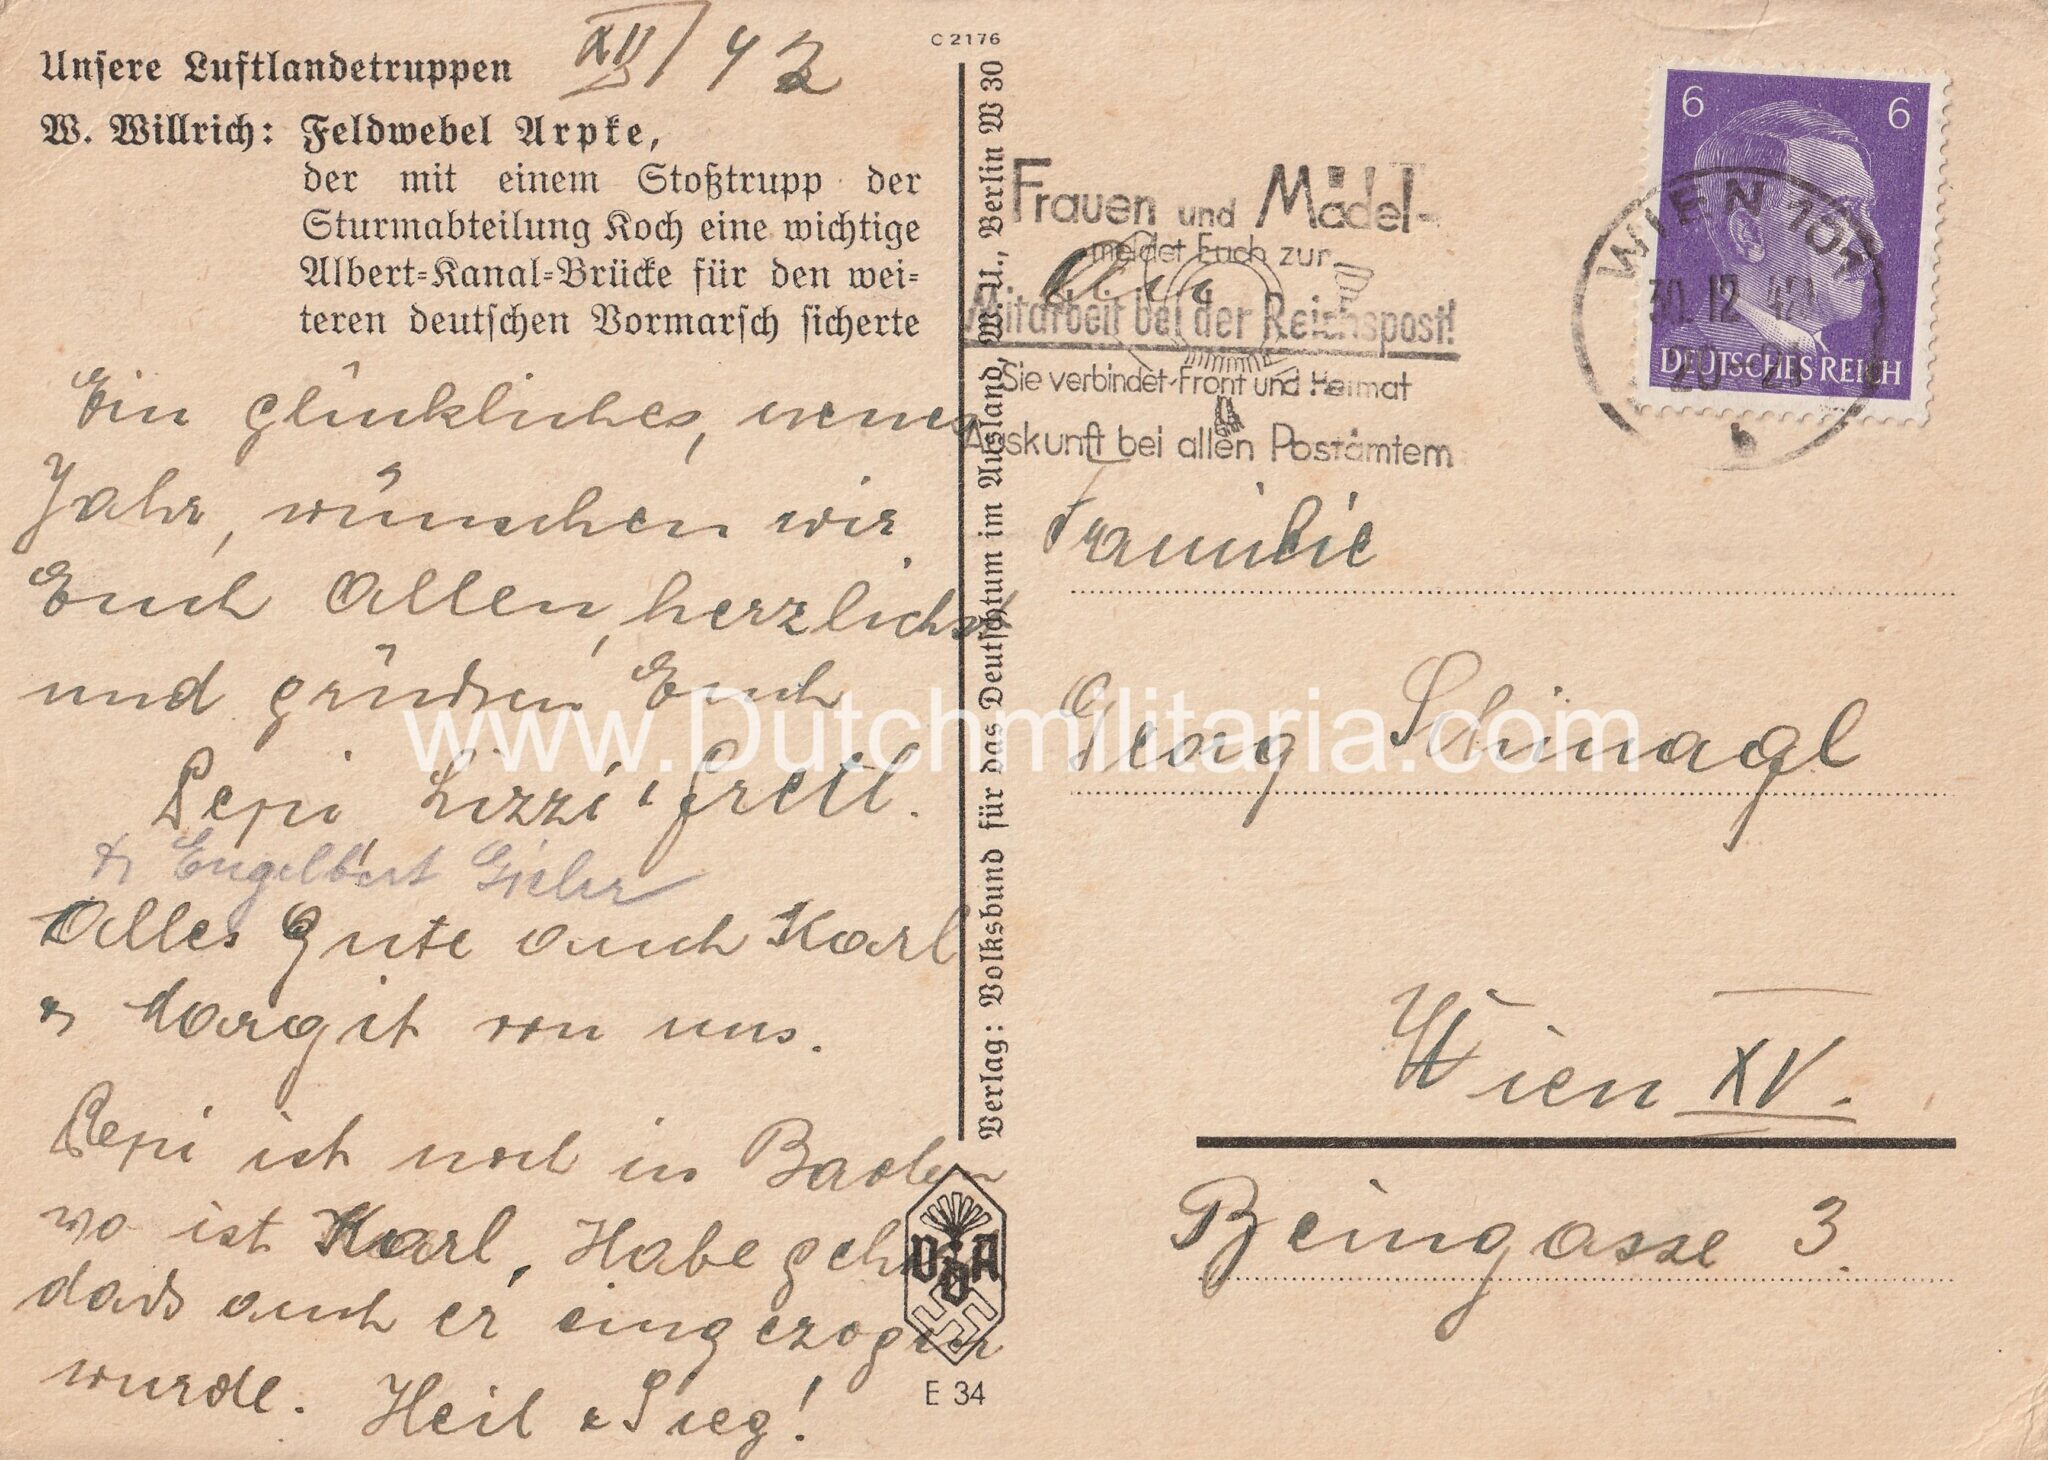 Unsere Luftlandetruppen
XII/42
W. Willrich: Feldwebel Arpke,
der mit einem Stoßtrupp der
Sturmabteilung Koch eine wichtige
Albert-Kanal-Brücke für den wei-
teren deutschen Vormarsch sicherte
Ein glückliches, neues
Jahr, wünschen wir
Euch Allen, herzlichst
und grüßen Euch
Pepi Lizzi & Gretl.
& Engelbert
Alles Gute auch Karl
& Margit von uns.
Pepi ist noch in Baden
wo ist Karl, Habe gehört
dass auch er eingezogen
wurde. Heil & Sieg!
C 2176
Verlag: Volksbund für das Deutschtum im Ausland, W. U., Berlin W 30
VDA
E 34
Frauen und Mädel-
meldet Euch zur
Mitarbeit bei der Reichspost!
Sie verbindet Front und Heimat
Auskunft bei allen Postämtern
6 6
DEUTSCHES REICH
WIEN 101
30.12.42
20-21
b
An
Familie
Georg Schinagl
Wien XV.
Beingasse 3.
www.Dutchmilitaria.com